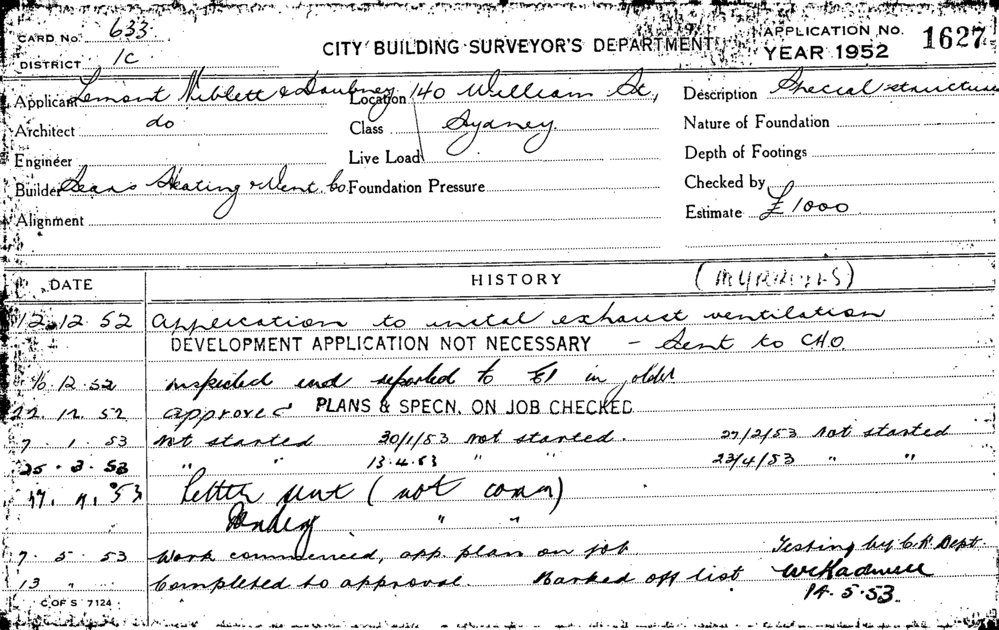 CARD No. 633
DISTRICT 1C
CITY BUILDING SURVEYOR'S DEPARTMENT
APPLICATION No. 1627
YEAR 1952
Applicant Lemont Niblett & Daubney Location 140 William St, Description Special structure
Architect do Class Sydney Nature of Foundation
Engineer Live Load Depth of Footings
Builder Sears Heating & Vent Co Foundation Pressure Checked by
Alignment Estimate £1000
DATE HISTORY
12.12.52 application to instal exhaust ventilation
DEVELOPMENT APPLICATION NOT NECESSARY - Sent to CHO
12.52 inspected and reported to in
22.12.52 approved PLANS & SPECN. ON JOB CHECKED
7.1.53 not started 30/1/53 not started. 27/2/53 not started
25.3.53 " " 13.4.53 " " 23/4/53 " "
53 Letter sent (not comm)
" "
7.5.53 Work commenced, app. plan on job Testing by Dept.
13 " Completed to approval. Marked off list
14.5.53
C OF S 7124